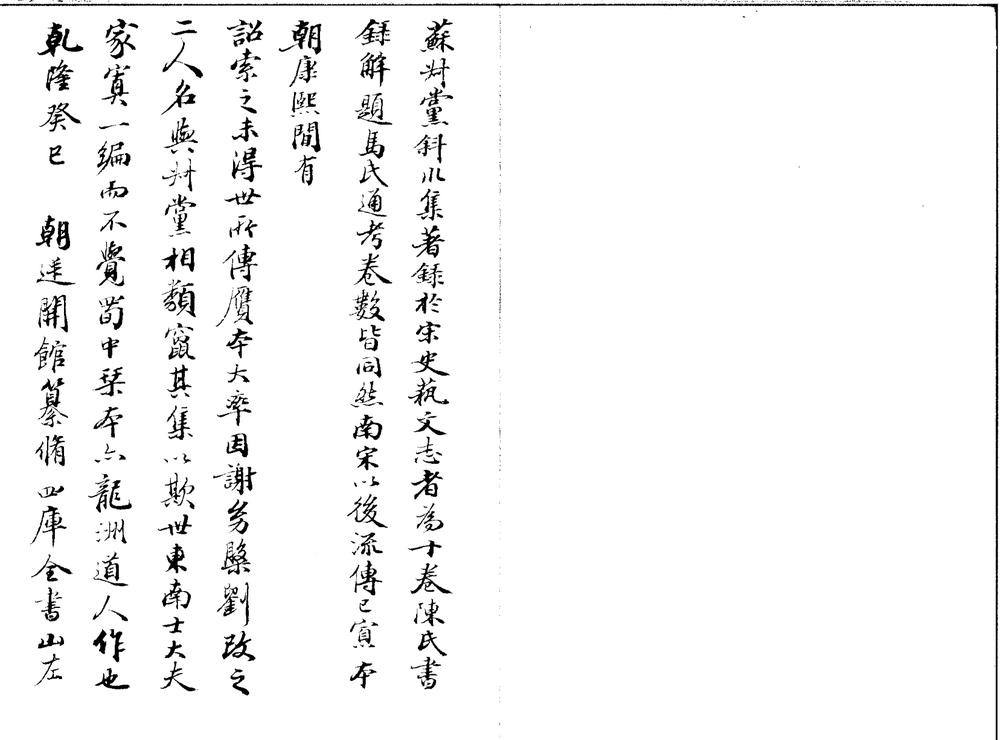 蘇叔黨斜川集著錄於宋史藝文志者為十卷陳氏書
錄解題馬氏通考卷數皆同然南宋以後流傳已寡本
朝康熙間有
詔索之未得世所傳贗本大率因謝幼槃劉改之
二人名與叔黨相類竄其集以欺世東南士大夫
家寘一編而不覺蜀中琹本亦龍洲道人作也
乾隆癸巳　朝廷開館纂脩四庫全書山左